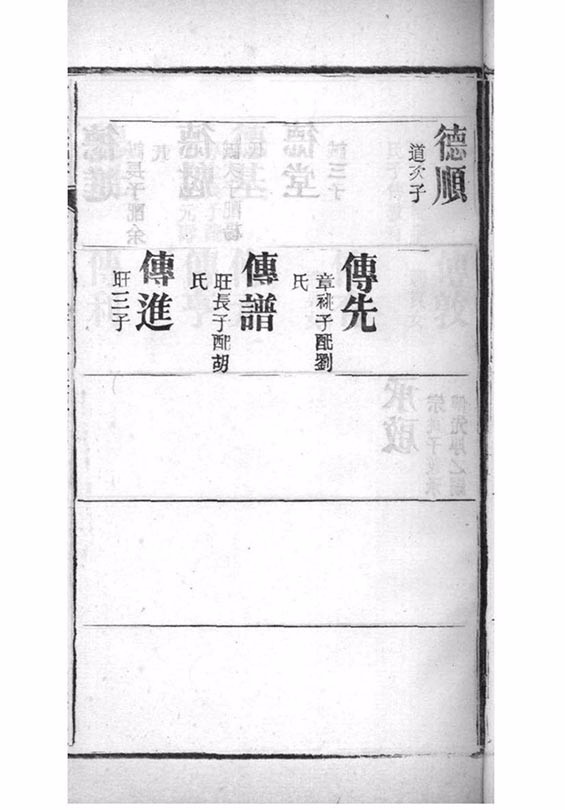 德順
道次子
傳先
章祧子配劉
氏
傳譜
旺長子配胡
氏
傳進
旺三子